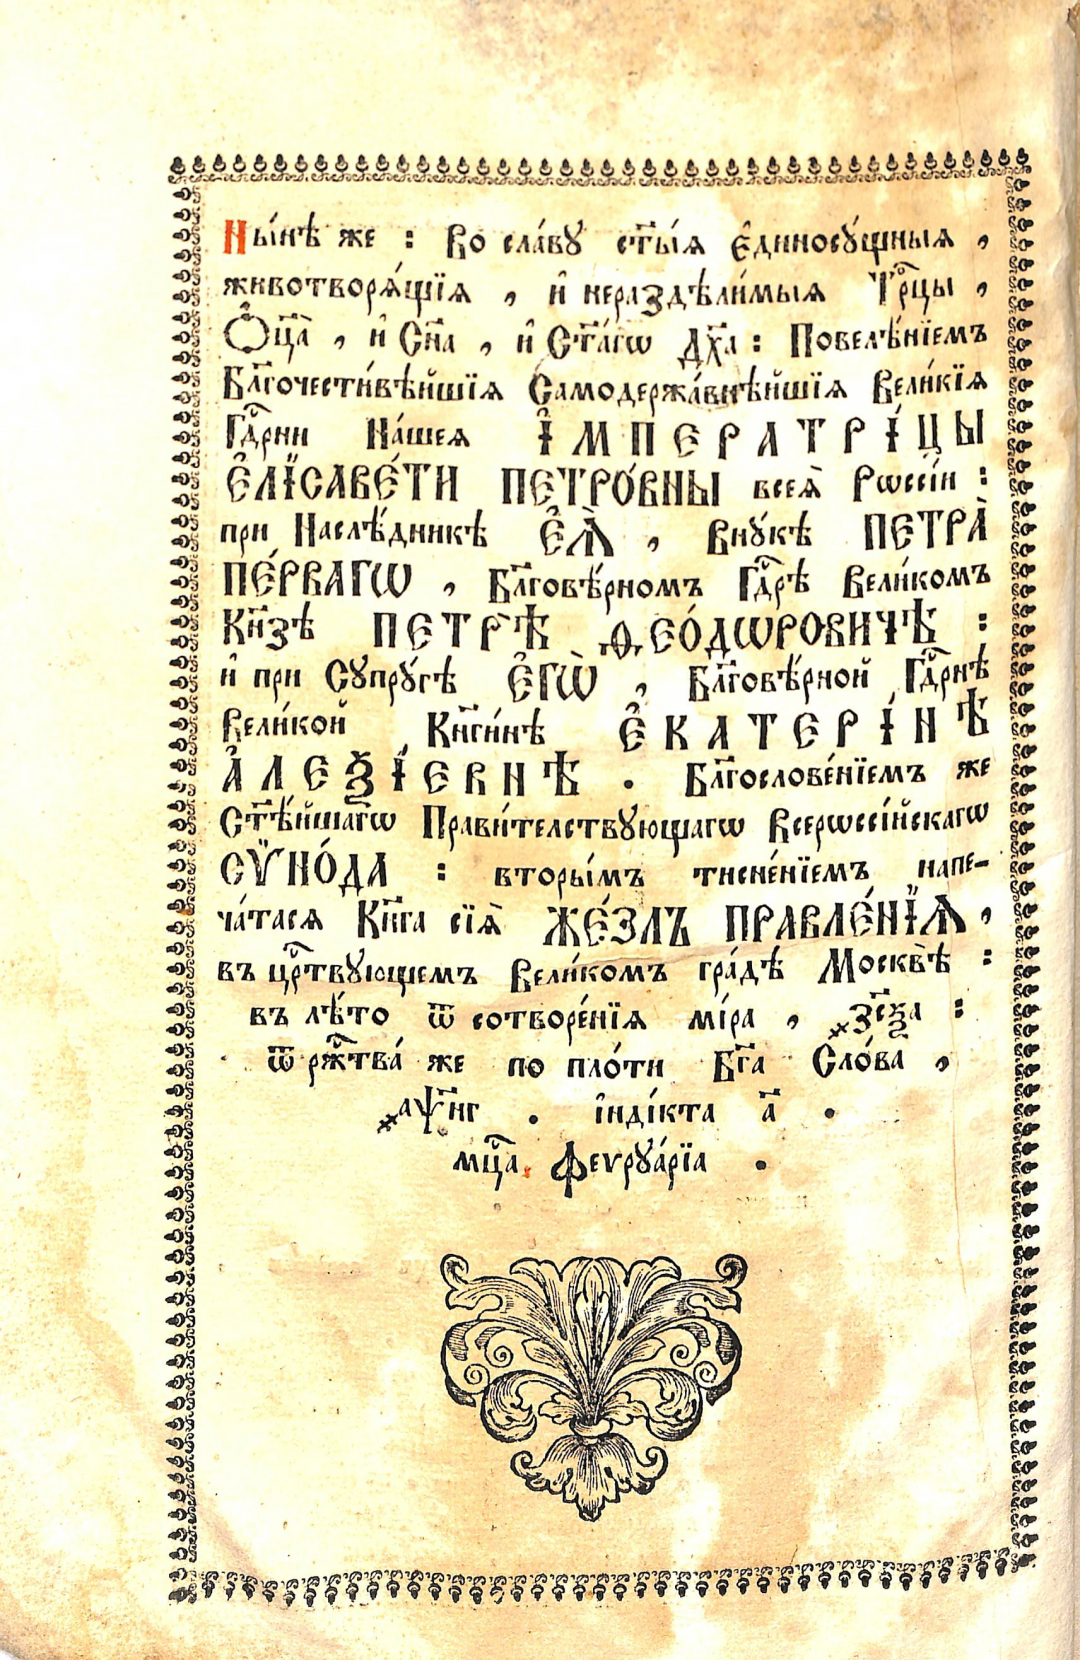 Ны́нѣ же : Во сла́ву ст҃ы́ѧ є҆диносꙋ́щныѧ ,
животворѧ́щїѧ , и҆ нераздѣли́мыѧ Трⷪ҇цы ,
Ѻ҆ц҃а̀ , и҆ Сн҃а , и҆ Ст҃а́гѡ Дх҃а : Повелѣ́нїемъ
Бл҃гочести́вѣйшїѧ Самодержа́внѣйшїѧ Вели́кїѧ
Гдⷭ҇рни На́шеѧ І҆МПЕРАТРІ́ЦЫ
Є҆ЛІСАВЕ́ТИ ПЕТРО́ВНЫ всеѧ̀ Рѡссі́и :
при Наслѣ́дникѣ Є҆Ѧ̀ , Внꙋ́кѣ ПЕТРА̀
ПЕ́РВАГѠ , Бл҃говѣ́рномъ Гдⷭ҇рѣ Вели́комъ
Кн҃зѣ ПЕТРѢ̀ Ѳ҆ЕО́ДѠРОВИЧѢ :
и҆ при Сꙋпрꙋ́гѣ Є҆ГѠ̀ , Бл҃говѣ́рной Гдⷭ҇рнѣ
Вели́кой Кн҃ги́нѣ Є҆КАТЕРІ́НѢ
А҆ЛЕѮІ́ЕВНѢ . Бл҃гослове́нїемъ же
Ст҃ѣ́йшагѡ Прави́телствꙋющагѡ Всерѡссі́йскагѡ
СѴНО́ДА : вторы́мъ тисне́нїемъ напе-
ча́тасѧ Кн҃га сїѧ̀ ЖЕ́ЗЛЪ ПРАВЛЕ́НЇѦ ,
въ црⷭ҇твꙋющемъ Вели́комъ гра́дѣ Москвѣ̀ :
въ лѣ́то ѿ сотворе́нїѧ мі́ра , ҂зс҃ѯа :
ѿ ржⷭ҇тва́ же по пло́ти Бг҃а Сло́ва ,
҂аѱ҃нг . і҆ндікта а҃ .
мцⷭ҇а Феврꙋа́рїа .